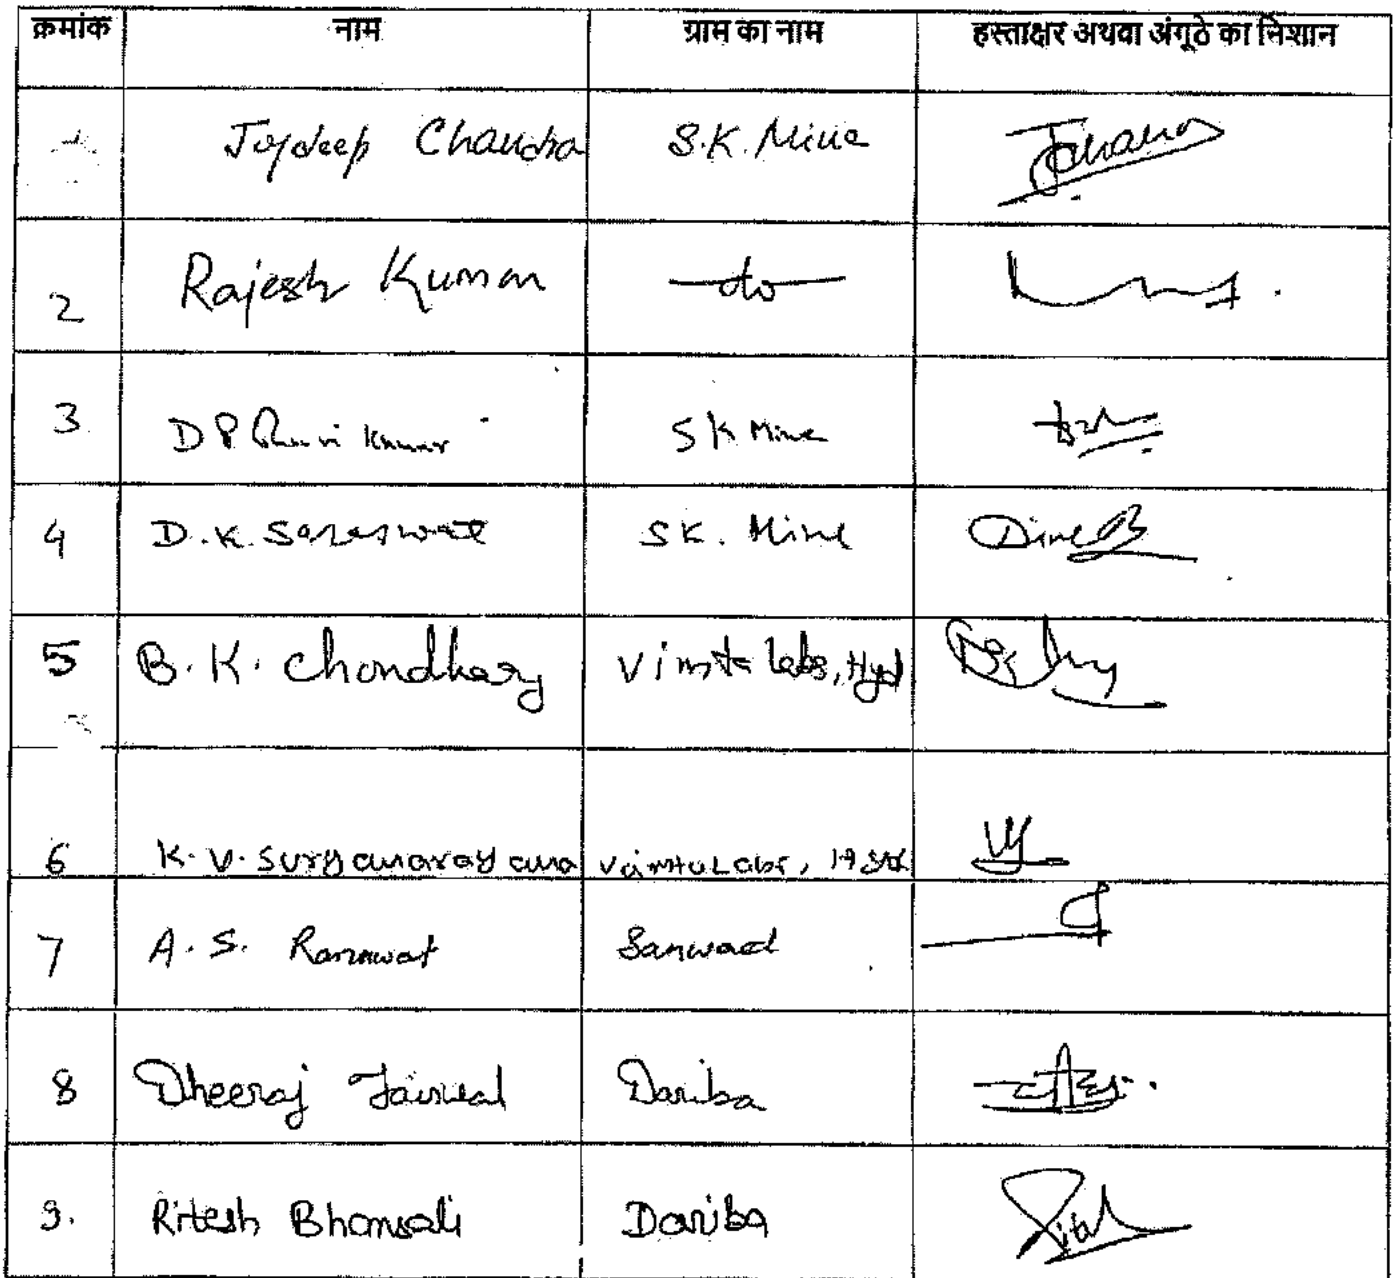 क्रमांक नाम ग्राम का नाम हस्ताक्षर अथवा अंगूठे का निशान
Joydeep Chandra S.K. Mine
2 Rajesh Kumar do
3 D P Ravi Kumar S K Mine
4 D.K. Saraswat SK. Mine
5 B.K. Chondhary Vimta labs, Hyd
6 K.V. Suryanarayana Vimta Labs, Hyd
7 A.S. Ranawat Sanwad
8 Dheeraj Dariba
9. Ritesh Bhansali Dariba